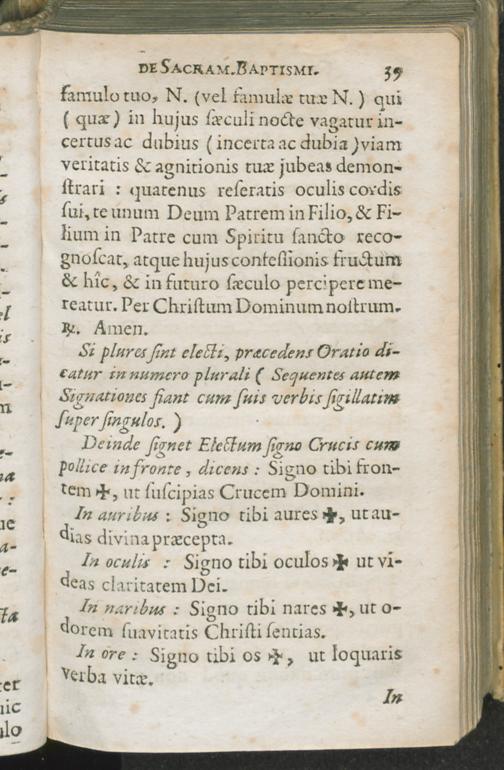 DE SACRAM. BAPTISMI. 39
famulo tuo, N. (vel famulæ tuæ N.) qui
(quæ) in hujus ſæculi nocte vagatur in-
certus ac dubius (incerta ac dubia) viam
veritatis & agnitionis tuæ jubeas demon-
ſtrari : quatenus reſeratis oculis cordis
ſui, te unum Deum Patrem in Filio, & Fi-
lium in Patre cum Spiritu ſancto reco-
gnoſcat, atque hujus confeſſionis fructum
& hîc, & in futuro ſæculo percipere me-
reatur. Per Chriſtum Dominum noſtrum.
℟. Amen.
Si plures ſint electi, præcedens Oratio di-
catur in numero plurali ( Sequentes autem
Signationes fiant cum ſuis verbis ſigillatim
ſuper ſingulos. )
Deinde ſignet Electum ſigno Crucis cum
pollice in fronte, dicens : Signo tibi fron-
tem ✠, ut ſuſcipias Crucem Domini.
In auribus : Signo tibi aures ✠, ut au-
dias divina præcepta.
In oculis : Signo tibi oculos ✠ ut vi-
deas claritatem Dei.
In naribus : Signo tibi nares ✠, ut o-
dorem ſuavitatis Chriſti ſentias.
In ore : Signo tibi os ✠, ut loquaris
verba vitæ.
In